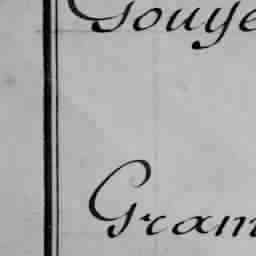 Gouye
Gram